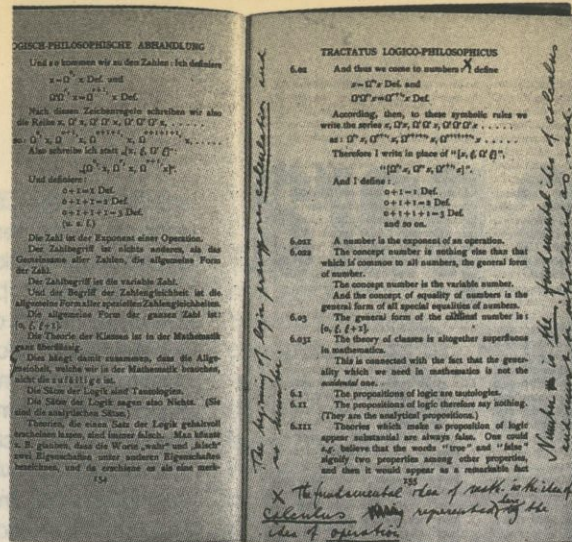 OGISCH-PHILOSOPHISCHE ABHANDLUNG
Und so kommen wir zu den Zahlen: Ich definiere
x = Ω⁰’ x Def. und
Ω’Ων’ x = Ων+1’ x Def.
Nach diesen Zeichenregeln schreiben wir also
die Reihe x, Ω’ x, Ω’ Ω’ x, Ω’ Ω’ Ω’ x, . . . . .
so:
Also schreibe ich statt „[x, ξ, Ω’ ξ]“:
Und definiere:
0+1=1 Def.
0+1+1=2 Def.
0+1+1+1=3 Def.
(u. s. f.)
Die Zahl ist der Exponent einer Operation.
Der Zahlbegriff ist nichts anderes, als das
Gemeinsame aller Zahlen, die allgemeine Form
der Zahl.
Der Zahlbegriff ist die variable Zahl.
Und der Begriff der Zahlengleichheit ist die
allgemeine Form aller speziellen Zahlengleichheiten.
Die allgemeine Form der ganzen Zahl ist:
[0, ξ, ξ+1].
Die Theorie der Klassen ist in der Mathematik
ganz überflüssig.
Dies hängt damit zusammen, dass die Allge-
meinheit, welche wir in der Mathematik brauchen,
nicht die zufällige ist.
Die Sätze der Logik sind Tautologien.
Die Sätze der Logik sagen also Nichts. (Sie
sind die analytischen Sätze.)
Theorien, die einen Satz der Logik gehaltvoll
erscheinen lassen, sind immer falsch. Man könnte
z. B. glauben, dass die Worte „wahr“ und „falsch“
zwei Eigenschaften unter anderen Eigenschaften
bezeichnen, und da erschiene es als eine merk-
154
The beginning of logic presupposes calculation and
so number.
TRACTATUS LOGICO-PHILOSOPHICUS
6.02 And thus we come to numbers: X I define
x = Ω⁰’ x Def. and
Ω’Ων’ x = Ων+1’ x Def.
According, then, to these symbolic rules we
write the series x, Ω’ x, Ω’ Ω’ x, Ω’ Ω’ Ω’ x . . . . .
as:
Therefore I write in place of “[x, ξ, Ω’ ξ]”,
“[Ω⁰’ x, Ων’ x, Ων+1’ x]”.
And I define:
0+1=1 Def.
0+1+1=2 Def.
0+1+1+1=3 Def.
and so on.
6.021 A number is the exponent of an operation.
6.022 The concept number is nothing else than that
which is common to all numbers, the general form
of number.
The concept number is the variable number.
And the concept of equality of numbers is the
general form of all special equalities of numbers.
6.03 The general form of the cardinal number is:
[0, ξ, ξ+1].
6.031 The theory of classes is altogether superfluous
in mathematics.
This is connected with the fact that the gener-
ality which we need in mathematics is not the
accidental one.
6.1 The propositions of logic are tautologies.
6.11 The propositions of logic therefore say nothing.
(They are the analytical propositions.)
6.111 Theories which make a proposition of logic
appear substantial are always false. One could
e.g. believe that the words “true” and “false”
signify two properties among other properties,
and then it would appear as a remarkable fact
155
X The fundamental idea of math. is the idea of
calculus represented here by the
idea of operation
Number is the fundamental idea of calculus
and must be introduced as such.